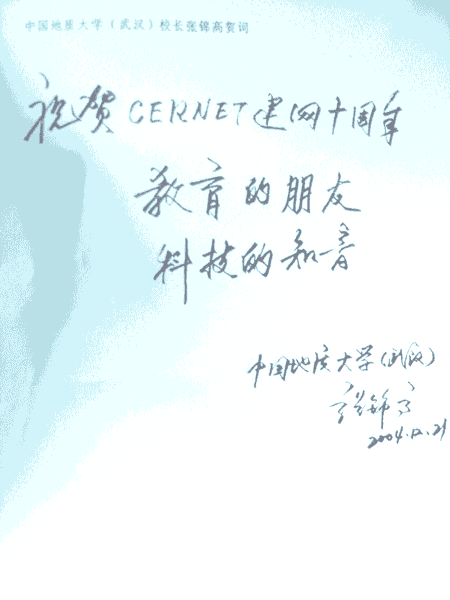 中国地质大学（武汉）校长张锦高贺词
祝贺CERNET建网十周年
教育的朋友
科技的知音
中国地质大学(武汉)
张锦高
2004.12.21